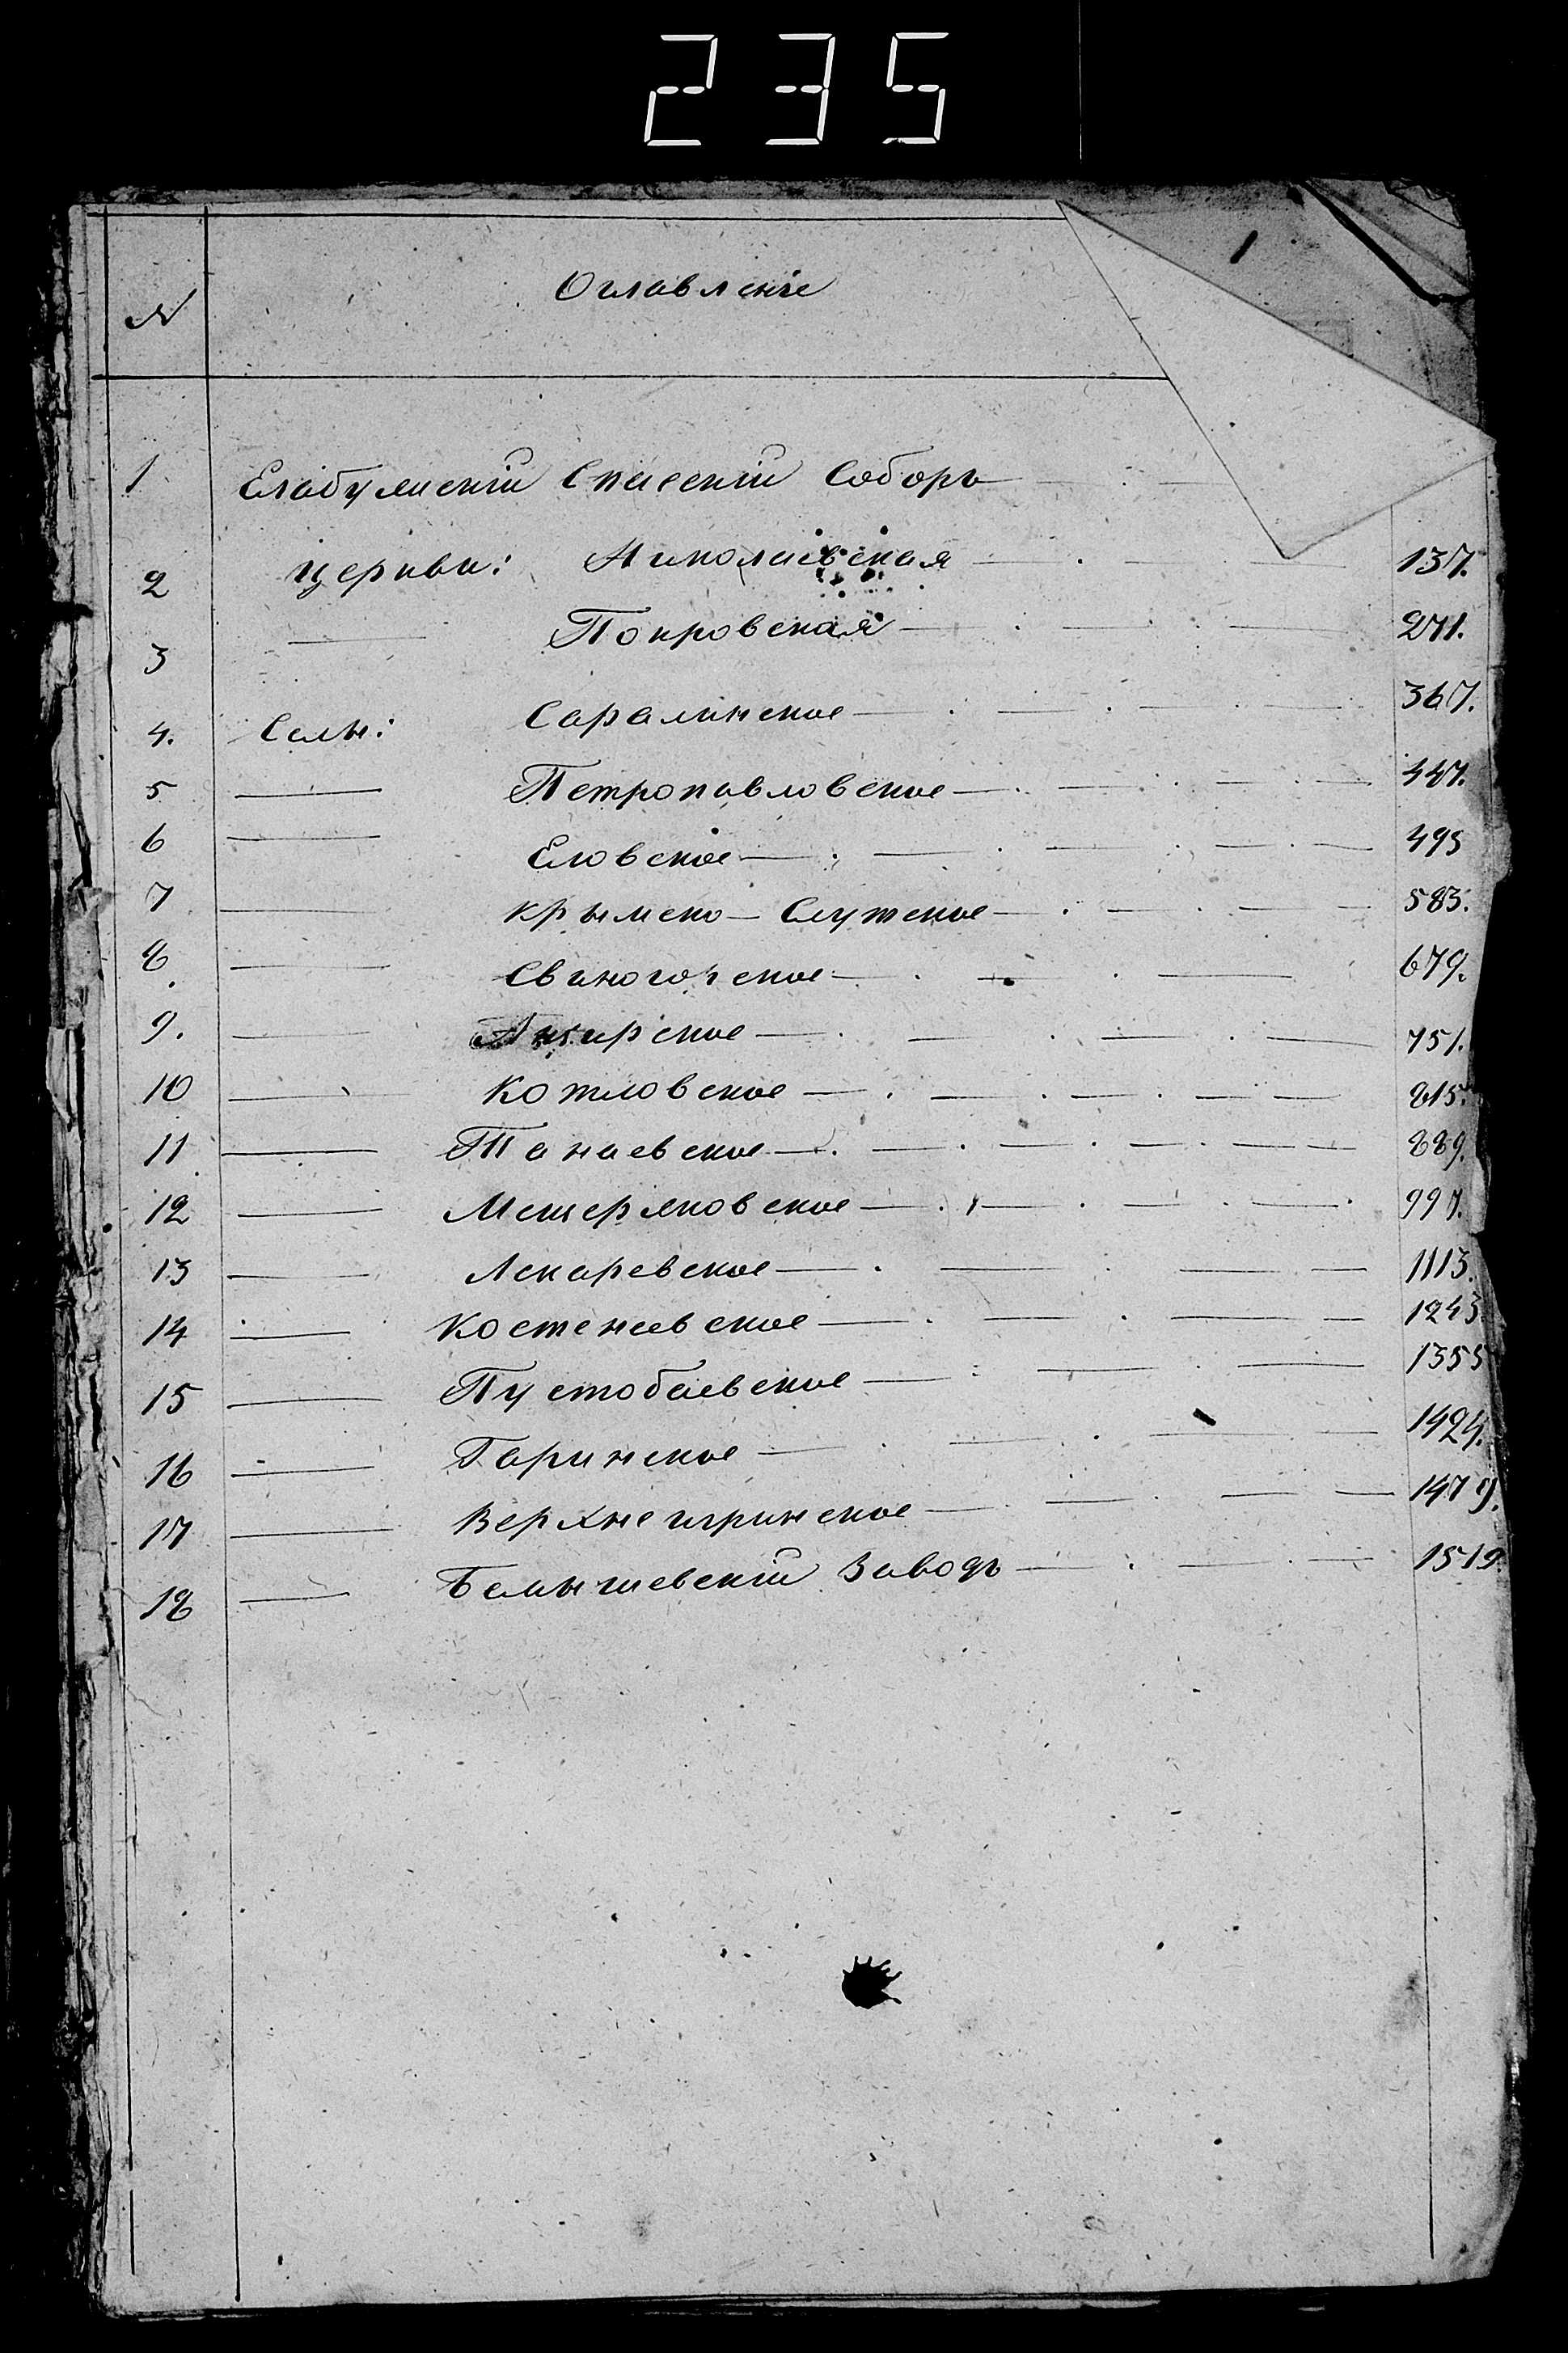 235
№ Оглавленіе
1 Елабужскій Спасскій Соборъ
2 Церкви: Николаевская 137.
3 Покровская 271.
4. Селы: Саралинское 367.
5 Петропавловское 447.
6 Еловское 495
7 Крымско-Слутское 583.
8. Свиногорское 679.
9. Анзирское 751.
10 Котловское 815.
11 Танаевское 889.
12 Мещеряковское 997.
13 Лекаревское 1113.
14 Костенеевское 1243
15 Пустобаевское 1355
16 Гаринское 1424.
17 Верхнешуринское 1479.
18 Бемышевскій Заводъ 1519.